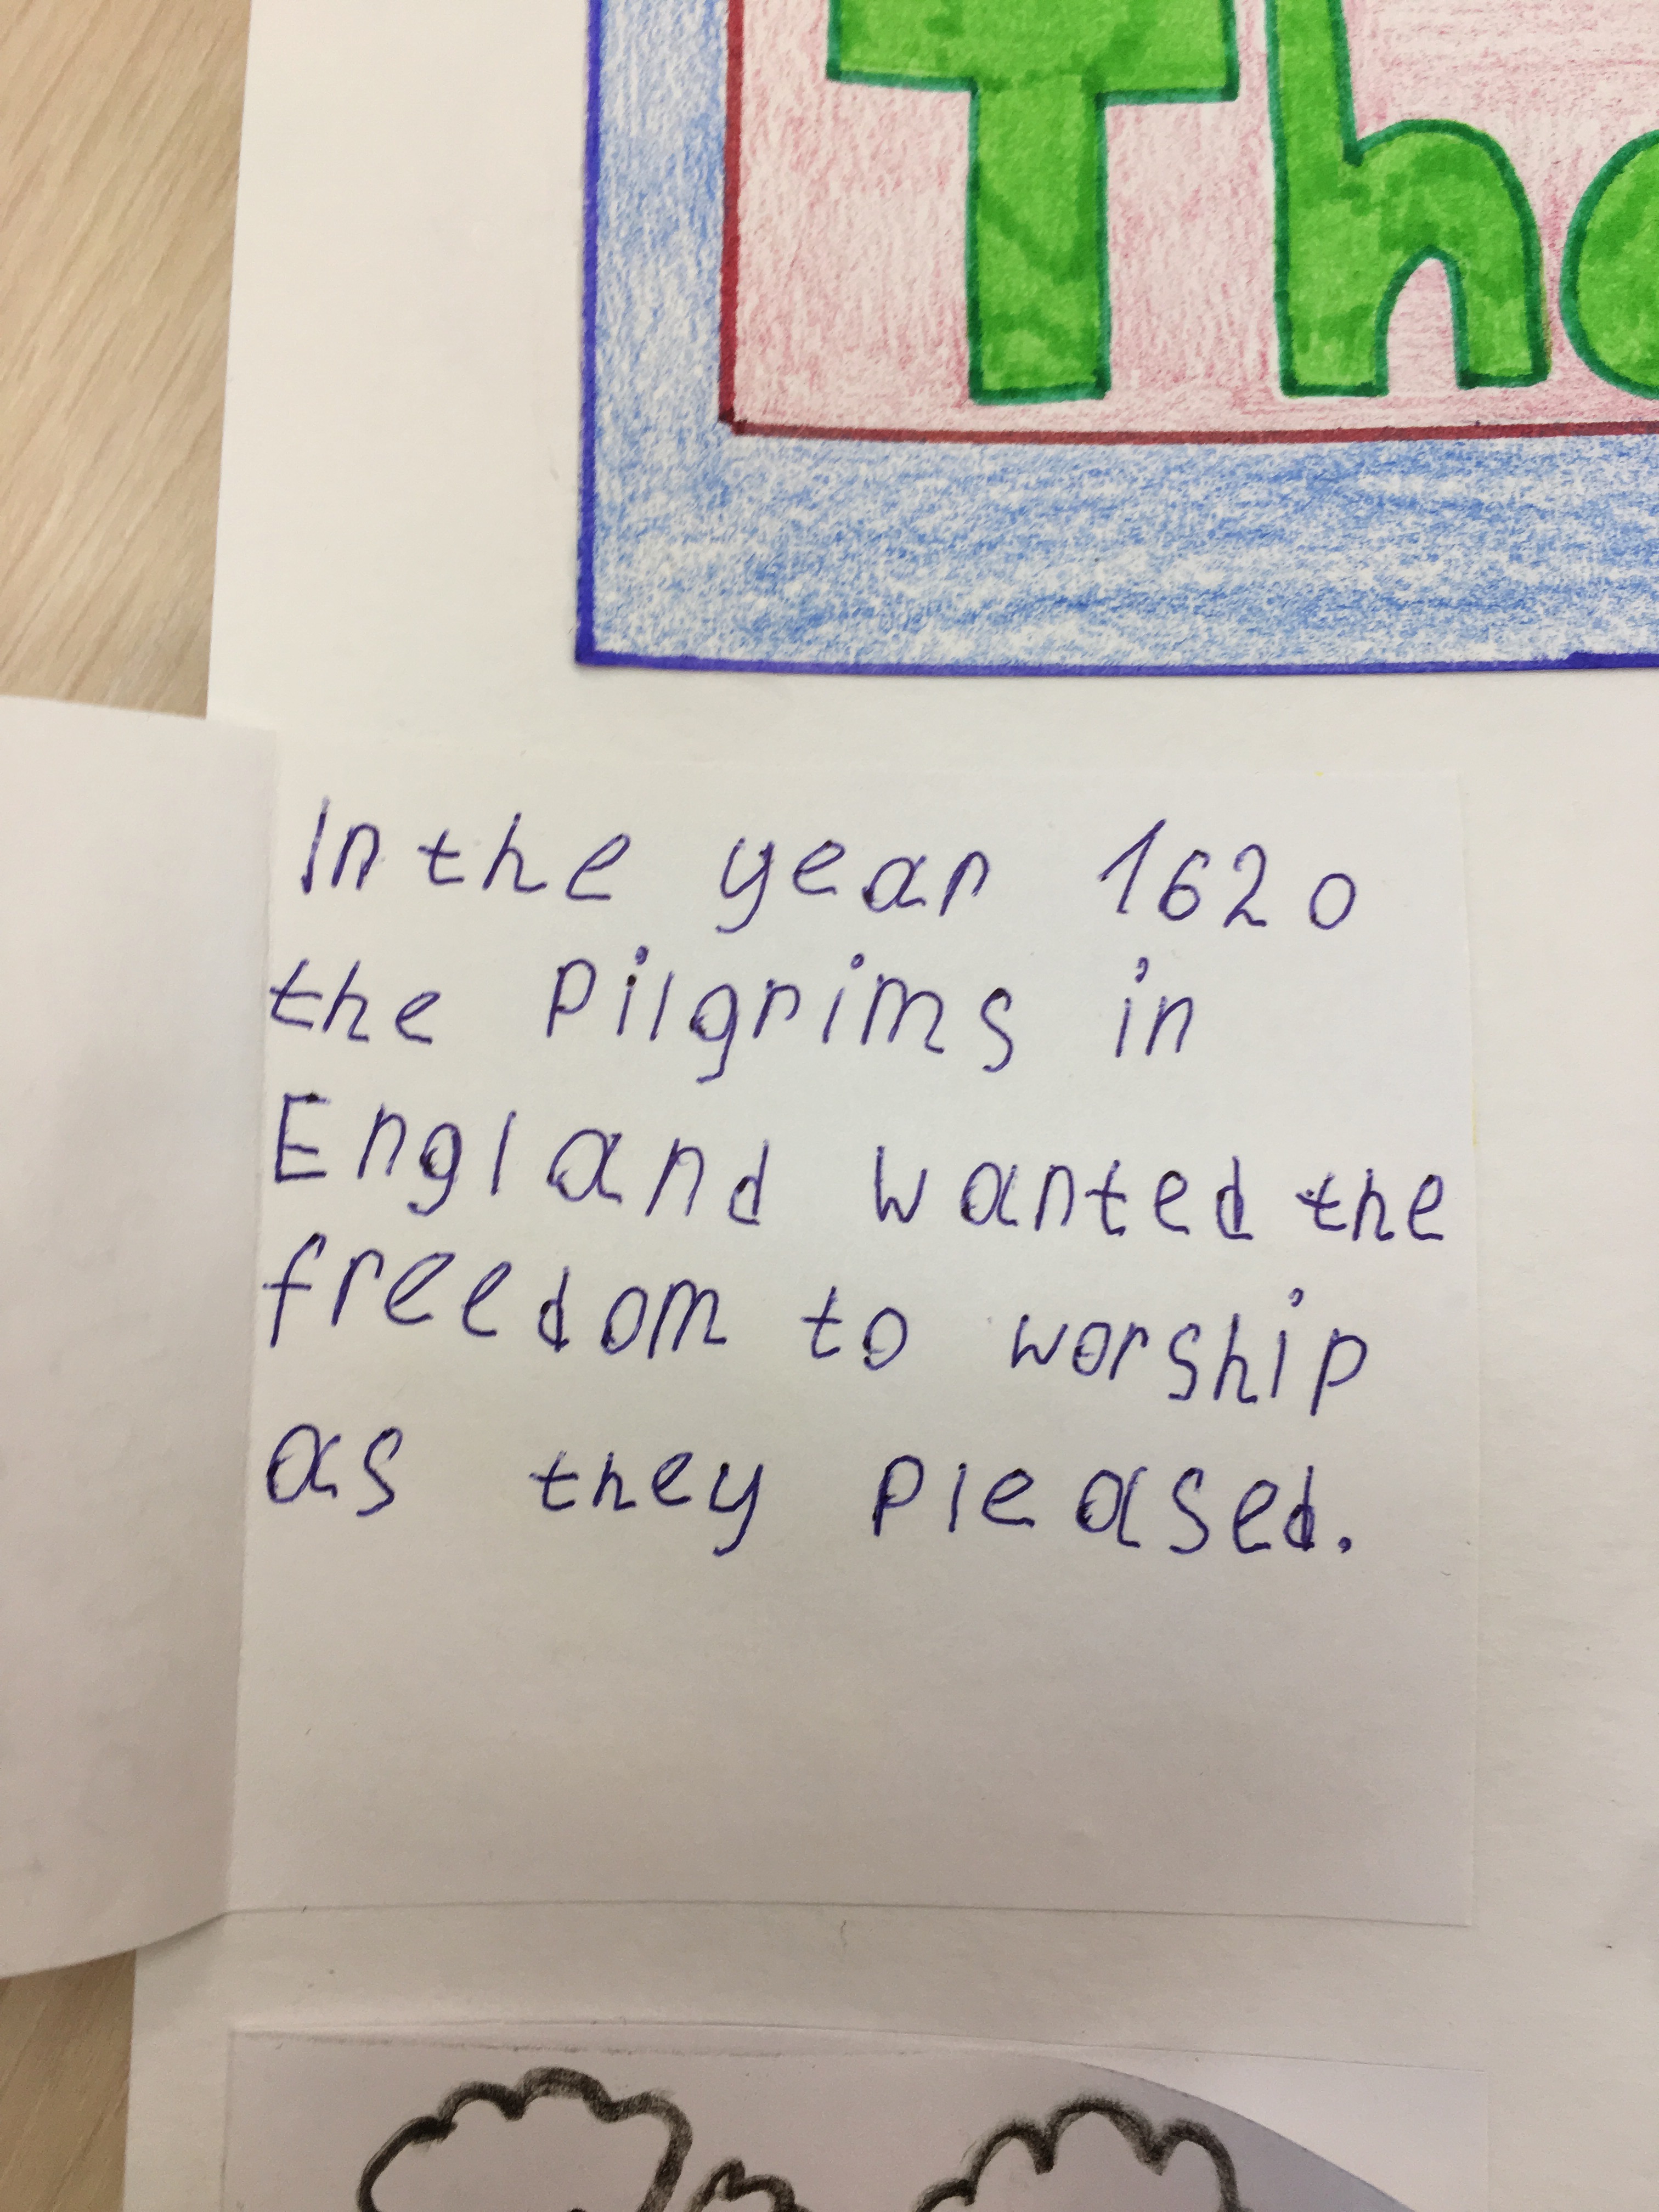 Tha
In the year 1620
the Pilgrims in
England wanted the
freedom to worship
as they pleased.